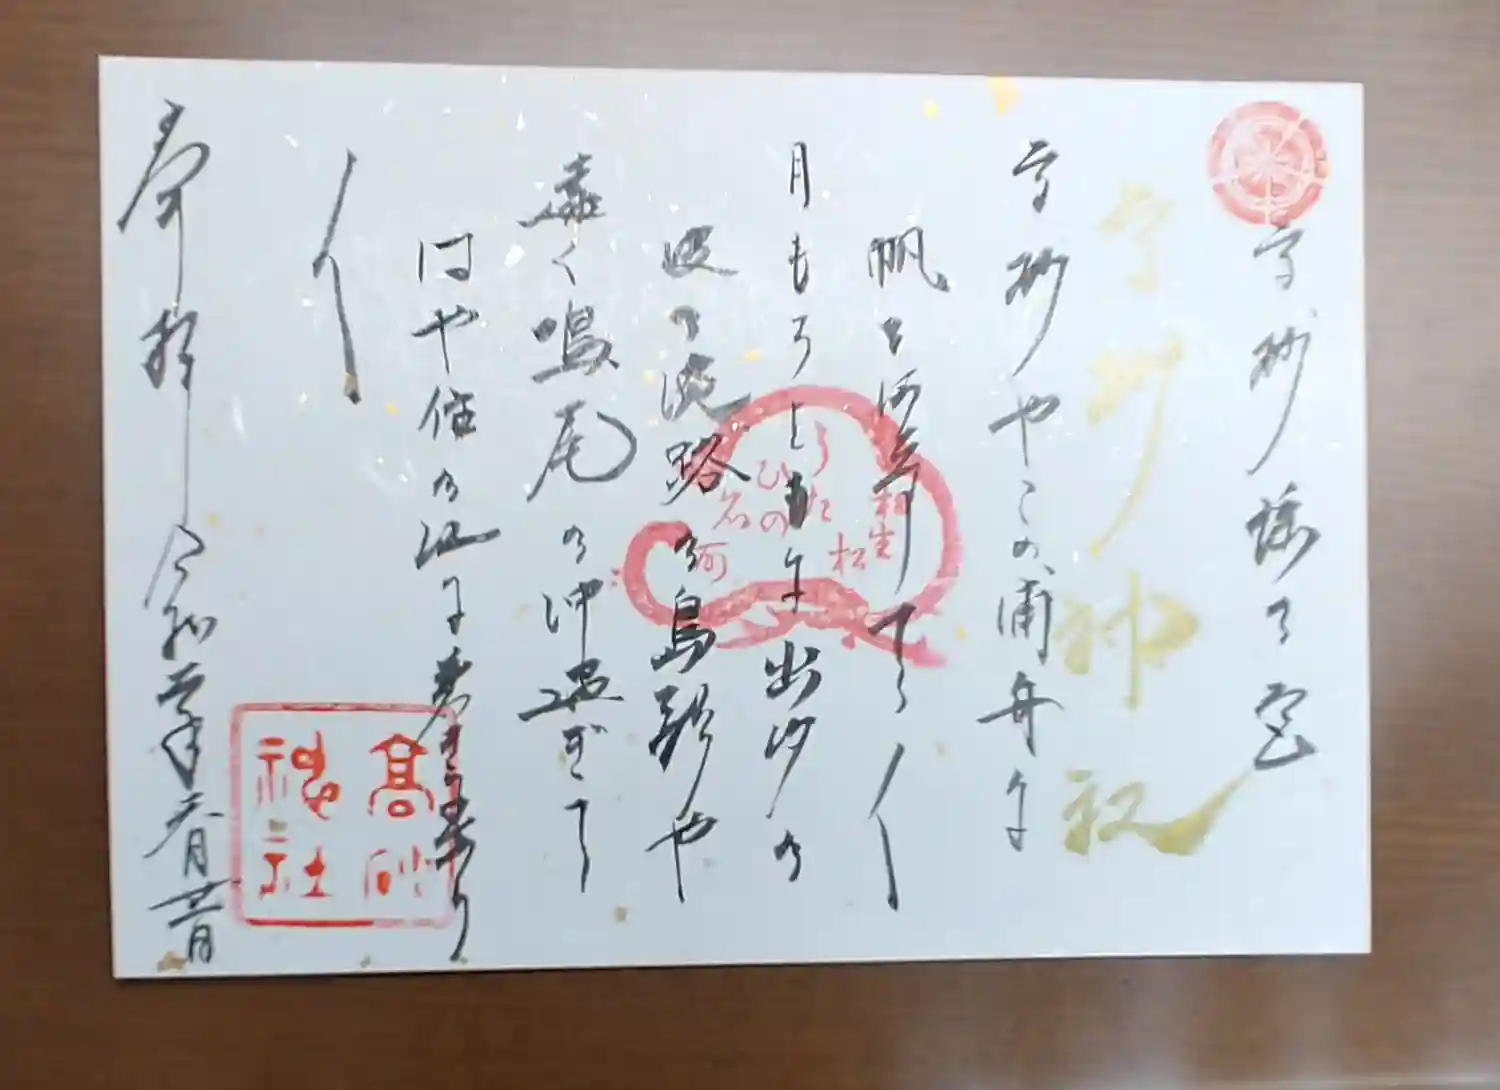 高砂様乃宮
高砂神社
高砂やこの浦舟に
帆を揚げて〱
月もろともに出汐の
波の淡路の島影や
遠く鳴尾の沖過ぎて
はや住の江に着きにけり
〱
奉拝 令和 年 月 日
相生
松
うた
ひの
名
所
高砂
神社